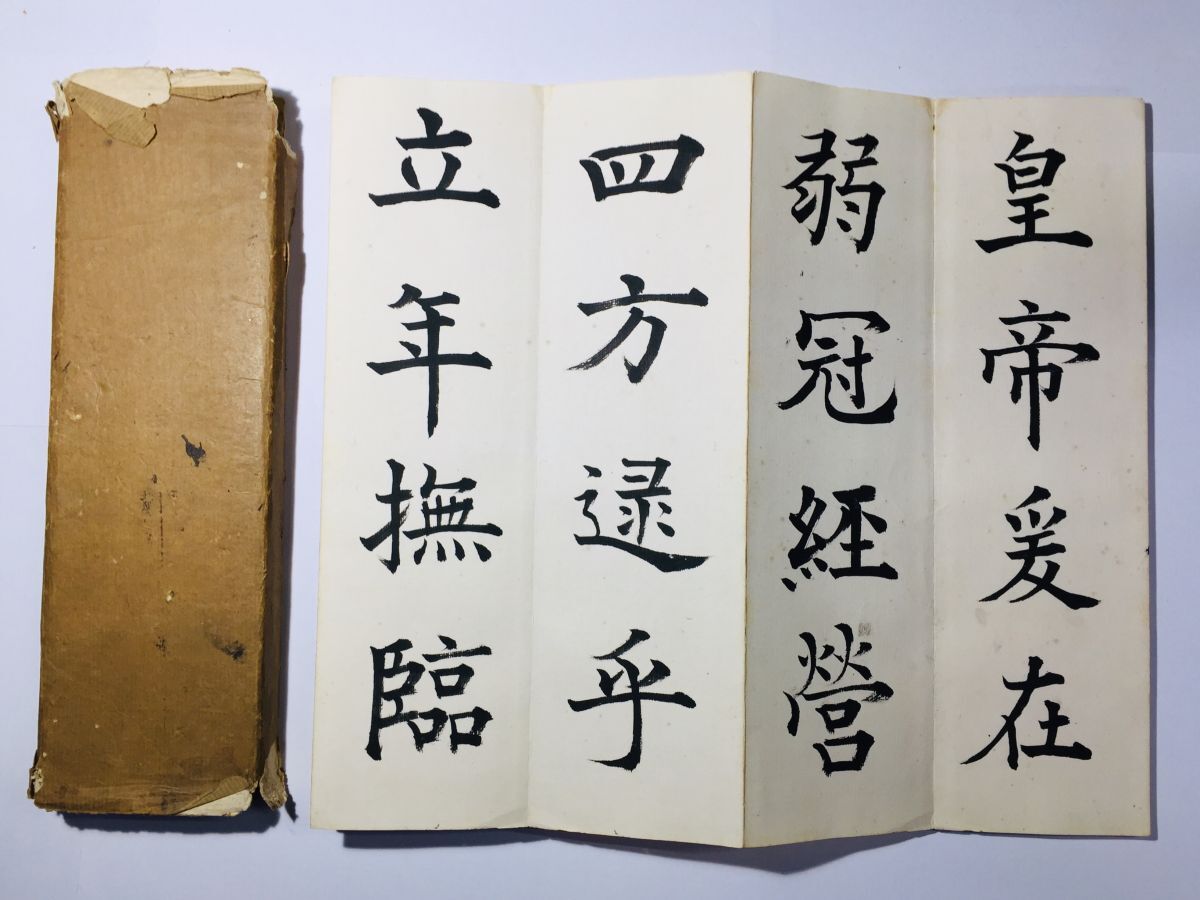 皇帝爰在
弱冠經營
四方逯乎
立年撫臨